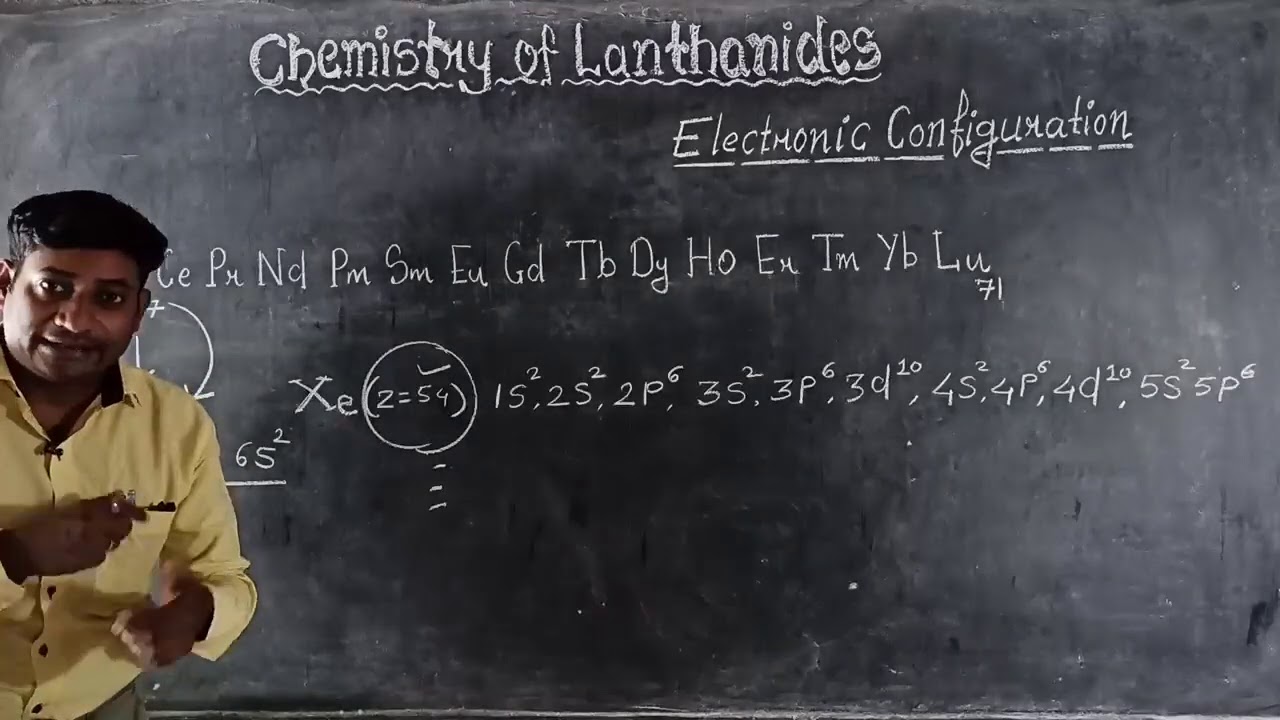 Chemistry of Lanthanides
Electronic Configuration
Ce Pr Nd Pm Sm Eu Gd Tb Dy Ho Er Tm Yb Lu
71
7
Xe (Z=54) 1S², 2S², 2P⁶, 3S², 3P⁶, 3d¹⁰, 4S², 4P⁶, 4d¹⁰, 5S² 5P⁶
6S²